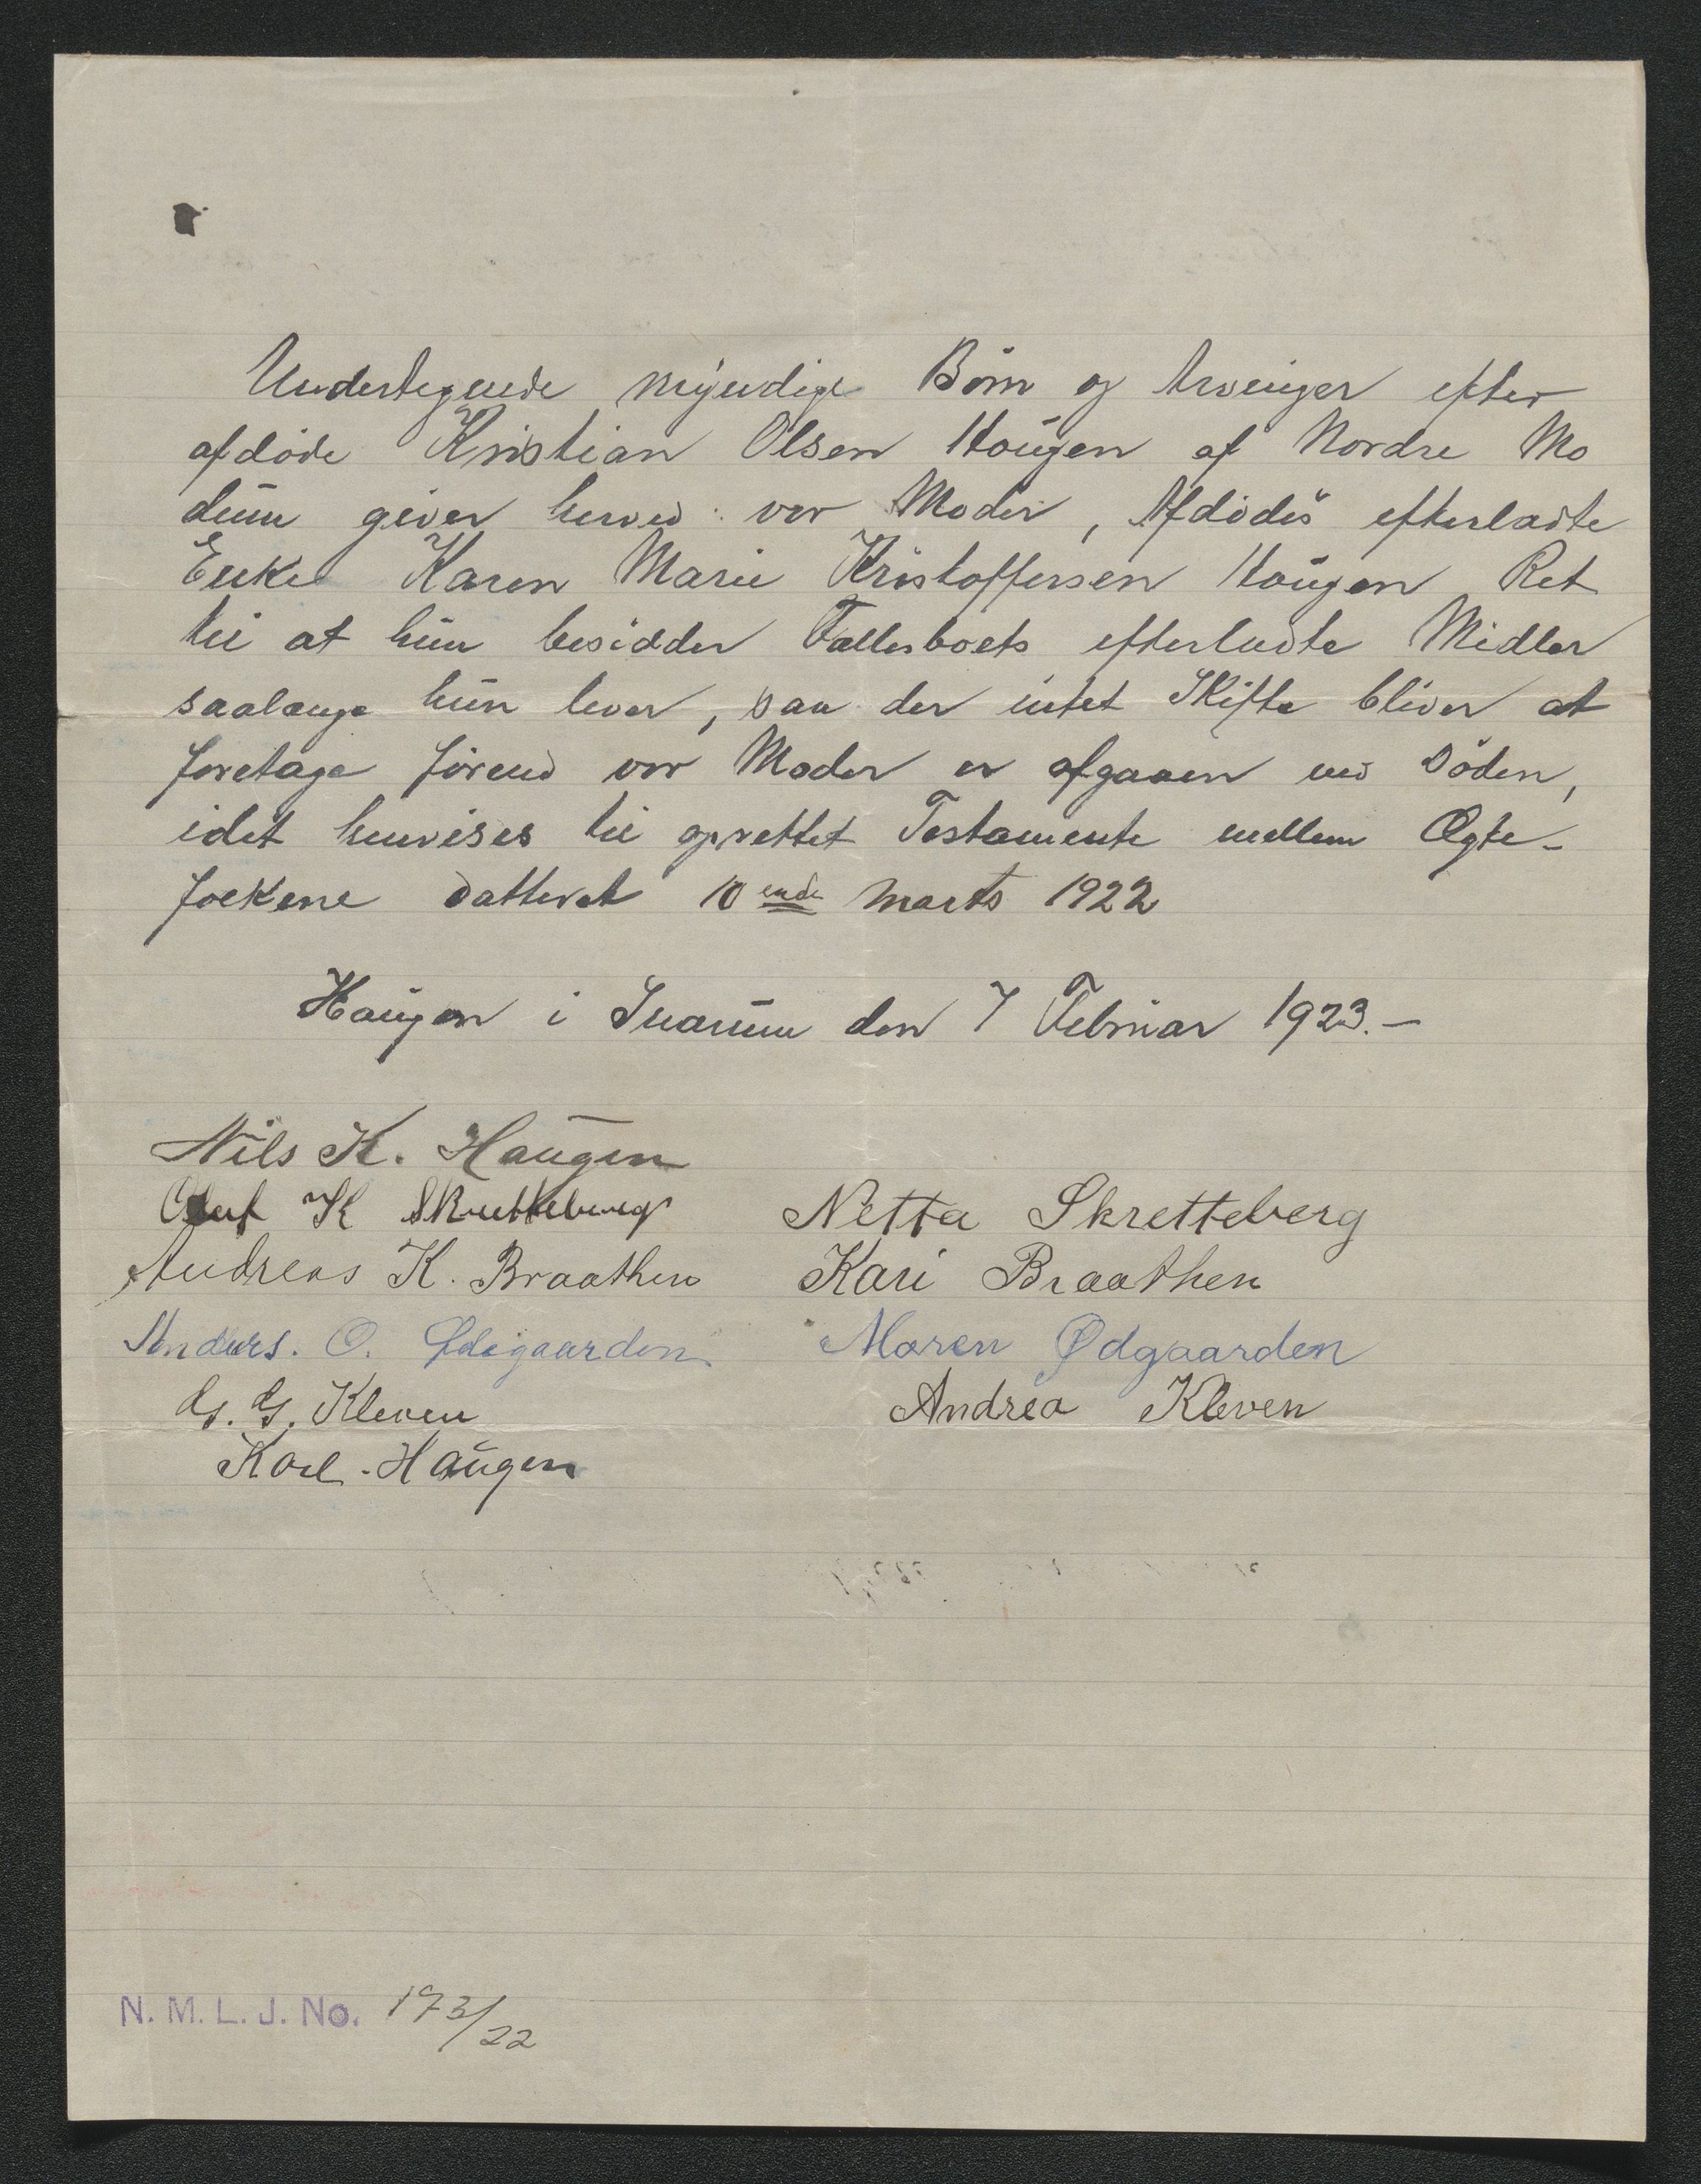 Undertegnede myndige Børn og Arvinger efter
afdøde Kristian Olsen Haugen af Nordre Mo
dum giver herved vor Moder, Afdødes efterladte
Enke Karen Marie Kristoffersen Haugen Ret
til at hun besidder Fællesboets efterladte Midler
saalænge hun lever, saa der intet Skifte bliver at
foretage førend vor Moder er afgaaen ved Døden,
idet henvises til oprettet Testamente mellem Ægte-
folkene datteret 10ende Marts 1922
Haugen i Snarum den 7 Februar 1923.-
Nils K. Haugen
Oluf K Skretteberg Netta Skretteberg
Andreas K. Braathen Kari Braathen
Anders. O. Ødegaarden Maren Ødgaarden
G. G. Kleven Andrea Kleven
Karl Haugen
N. M. L. J. No. 173/22